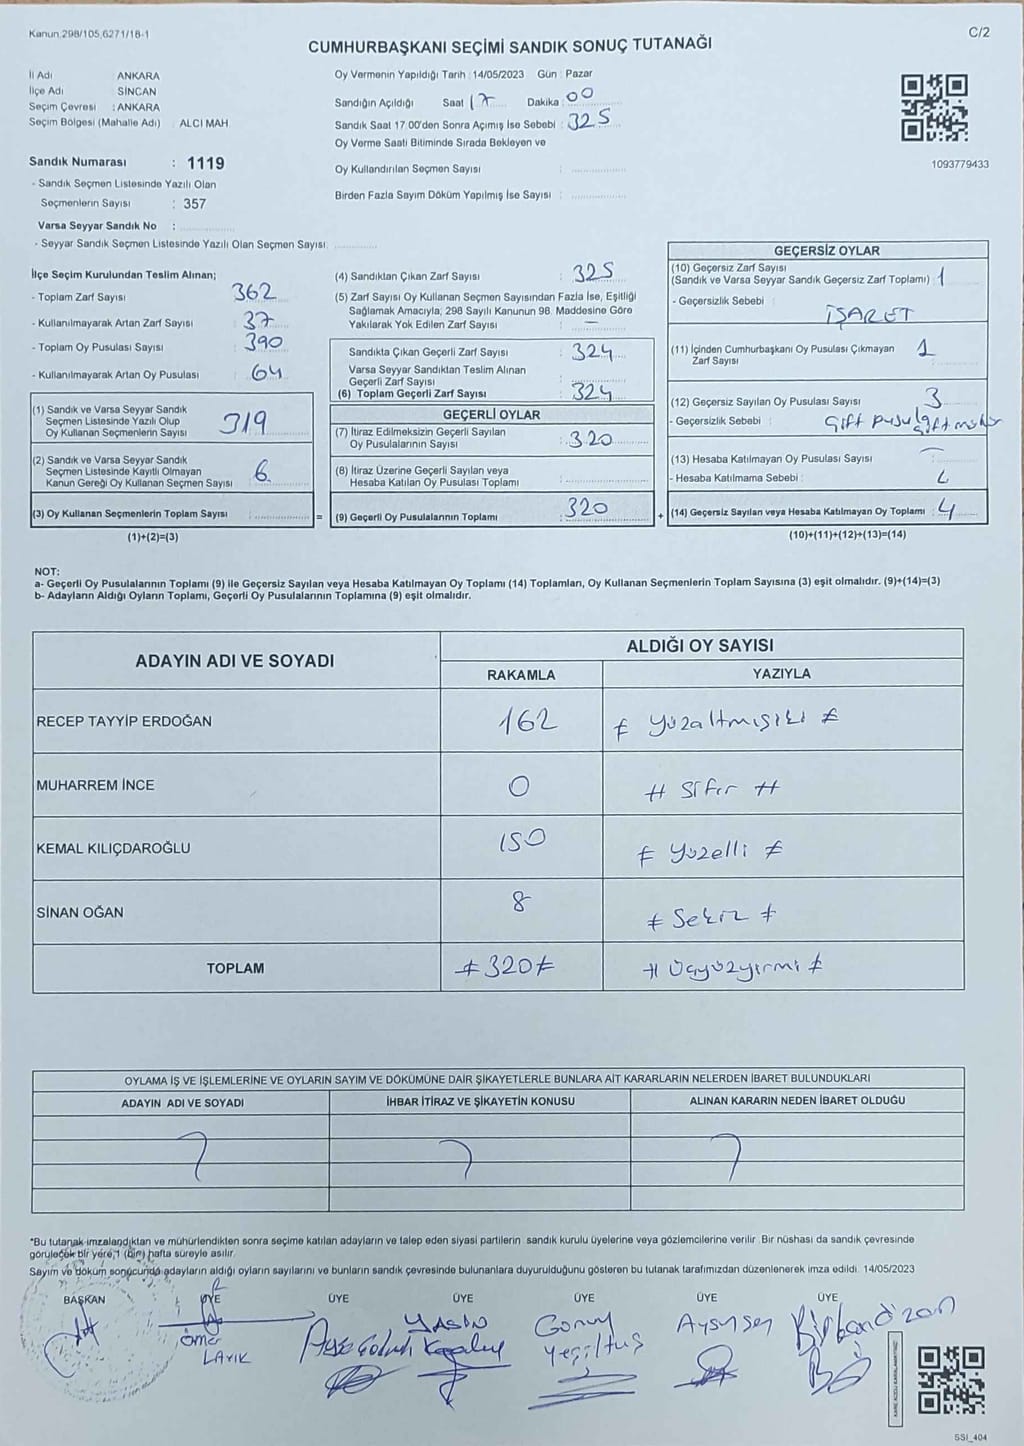 Kanun 298/105,6271/18-1
C/2
CUMHURBAŞKANI SEÇİMİ SANDIK SONUÇ TUTANAĞI
İl Adı : ANKARA
İlçe Adı : SİNCAN
Seçim Çevresi : ANKARA
Seçim Bölgesi (Mahalle Adı) : ALCI MAH
Sandık Numarası : 1119
- Sandık Seçmen Listesinde Yazılı Olan
Seçmenlerin Sayısı : 357
Varsa Seyyar Sandık No :
- Seyyar Sandık Seçmen Listesinde Yazılı Olan Seçmen Sayısı:
Oy Vermenin Yapıldığı Tarih : 14/05/2023 Gün : Pazar
Sandığın Açıldığı Saat 17 Dakika : 00
Sandık Saat 17.00'den Sonra Açımış İse Sebebi : 325
Oy Verme Saati Bitiminde Sırada Bekleyen ve
Oy Kullandırılan Seçmen Sayısı :
Birden Fazla Sayım Döküm Yapılmış İse Sayısı :
1093779433
İlçe Seçim Kurulundan Teslim Alınan;
- Toplam Zarf Sayısı : 362
- Kullanılmayarak Artan Zarf Sayısı : 37
- Toplam Oy Pusulası Sayısı : 390
- Kullanılmayarak Artan Oy Pusulası : 64
(1) Sandık ve Varsa Seyyar Sandık
Seçmen Listesinde Yazılı Olup
Oy Kullanan Seçmenlerin Sayısı : 319
(2) Sandık ve Varsa Seyyar Sandık
Seçmen Listesinde Kayıtlı Olmayan
Kanun Gereği Oy Kullanan Seçmen Sayısı : 6
(3) Oy Kullanan Seçmenlerin Toplam Sayısı :
(1)+(2)=(3)
(4) Sandıktan Çıkan Zarf Sayısı : 325
(5) Zarf Sayısı Oy Kullanan Seçmen Sayısından Fazla İse, Eşitliği
Sağlamak Amacıyla; 298 Sayılı Kanunun 98. Maddesine Göre
Yakılarak Yok Edilen Zarf Sayısı : —
Sandıkta Çıkan Geçerli Zarf Sayısı : 324
Varsa Seyyar Sandıktan Teslim Alınan
Geçerli Zarf Sayısı :
(6) Toplam Geçerli Zarf Sayısı : 324
GEÇERLİ OYLAR
(7) İtiraz Edilmeksizin Geçerli Sayılan
Oy Pusulalarının Sayısı : 320
(8) İtiraz Üzerine Geçerli Sayılan veya
Hesaba Katılan Oy Pusulası Toplamı :
= (9) Geçerli Oy Pusulalarının Toplamı : 320
GEÇERSİZ OYLAR
(10) Geçersiz Zarf Sayısı
(Sandık ve Varsa Seyyar Sandık Geçersiz Zarf Toplamı) : 1
- Geçersizlik Sebebi : İŞARET
(11) İçinden Cumhurbaşkanı Oy Pusulası Çıkmayan
Zarf Sayısı : 1
(12) Geçersiz Sayılan Oy Pusulası Sayısı : 3
- Geçersizlik Sebebi : Çift pusula
(13) Hesaba Katılmayan Oy Pusulası Sayısı : —
- Hesaba Katılmama Sebebi :
+ (14) Geçersiz Sayılan veya Hesaba Katılmayan Oy Toplamı : 4
(10)+(11)+(12)+(13)=(14)
NOT:
a- Geçerli Oy Pusulalarının Toplamı (9) ile Geçersiz Sayılan veya Hesaba Katılmayan Oy Toplamı (14) Toplamları, Oy Kullanan Seçmenlerin Toplam Sayısına (3) eşit olmalıdır. (9)+(14)=(3)
b- Adayların Aldığı Oyların Toplamı, Geçerli Oy Pusulalarının Toplamına (9) eşit olmalıdır.
ADAYIN ADI VE SOYADI
ALDIĞI OY SAYISI
RAKAMLA YAZIYLA
RECEP TAYYİP ERDOĞAN 162 # Yüzaltmışiki #
MUHARREM İNCE 0 # Sıfır #
KEMAL KILIÇDAROĞLU 150 # Yüzelli #
SİNAN OĞAN 8 # Sekiz #
TOPLAM #320# # Üçyüzyirmi #
OYLAMA İŞ VE İŞLEMLERİNE VE OYLARIN SAYIM VE DÖKÜMÜNE DAİR ŞİKAYETLERLE BUNLARA AİT KARARLARIN NELERDEN İBARET BULUNDUKLARI
ADAYIN ADI VE SOYADI İHBAR İTİRAZ VE ŞİKAYETİN KONUSU ALINAN KARARIN NEDEN İBARET OLDUĞU
*Bu tutanak imzalandıktan ve mühürlendikten sonra seçime katılan adayların ve talep eden siyasi partilerin sandık kurulu üyelerine veya gözlemcilerine verilir. Bir nüshası da sandık çevresinde
görülecek bir yere,1 (bir) hafta süreyle asılır.
Sayım ve döküm sonucunda adayların aldığı oyların sayılarını ve bunların sandık çevresinde bulunanlara duyurulduğunu gösteren bu tutanak tarafımızdan düzenlenerek imza edildi. 14/05/2023
BAŞKAN ÜYE ÜYE ÜYE ÜYE ÜYE ÜYE
Ömer LAYIK
YASİN
Gonul Yeşiltuş
Aysu Şen
SSI_404